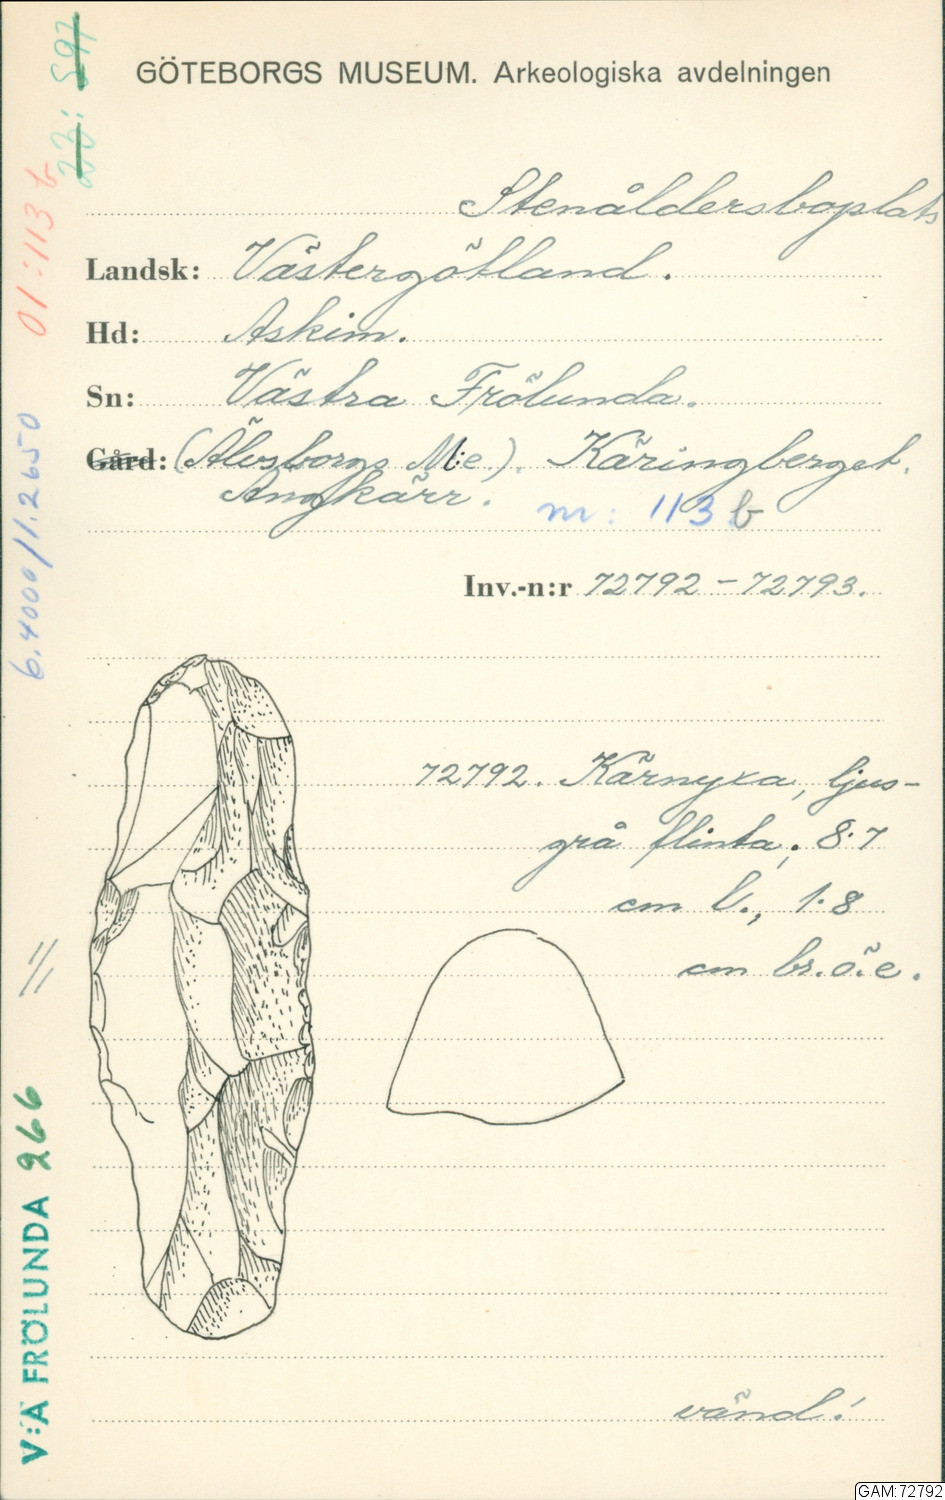 GÖTEBORGS MUSEUM. Arkeologiska avdelningen
Stenåldersboplats
Landsk: Västergötland.
Hd: Askim.
Sn: Västra Frölunda.
Gård: (Älvsborgs M:e). Käringberget.
Ängkärr.
nr: 113 b
Inv.-n:r 72792 – 72793.
72792. Kärnyxa, ljus-
grå flinta; 8.7
cm l., 1.8
cm br. ö. e.
vänd!
23: S97
01:113 b
6.4000/1.2650
V:Ä FRÖLUNDA 266
GAM:72792